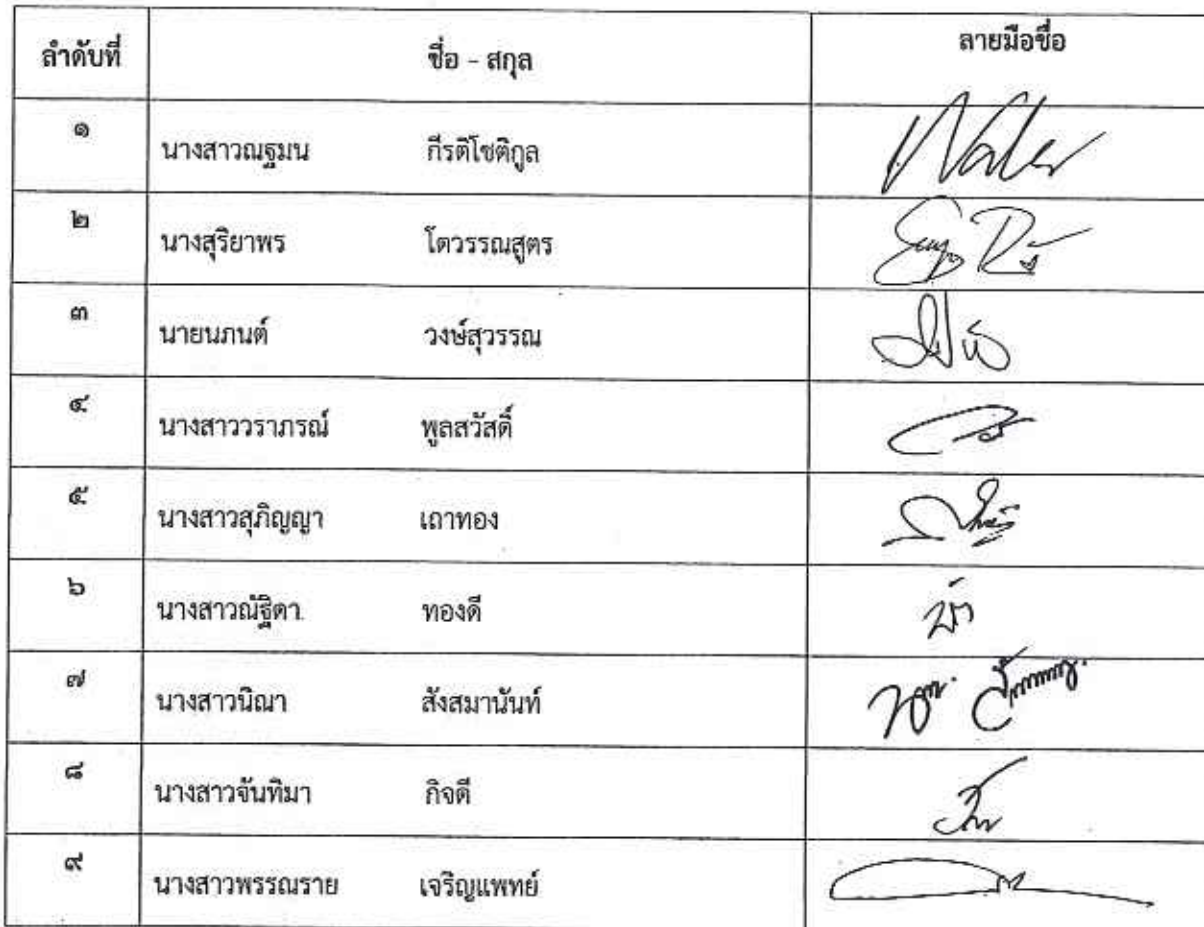 ลำดับที่ ชื่อ - สกุล ลายมือชื่อ
๑ นางสาวณฐมน กีรติโชติกูล
๒ นางสุริยาพร โตวรรณสูตร
๓ นายนภนต์ วงษ์สุวรรณ
๔ นางสาววราภรณ์ พูลสวัสดิ์
๕ นางสาวสุภิญญา เถาทอง
๖ นางสาวณัฐิตา ทองดี
๗ นางสาวนิณา สังสมานันท์
๘ นางสาวจันทิมา กิจดี
๙ นางสาวพรรณราย เจริญแพทย์